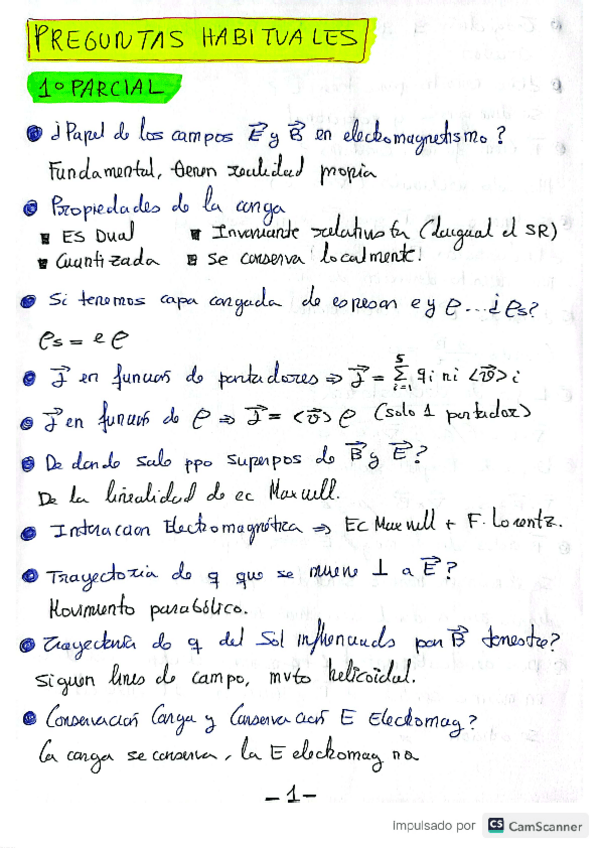 PREGUNTAS HABITUALES
1º PARCIAL
¿Papel de los campos E⃗ y B⃗ en electromagnetismo?
Fundamental, tienen realidad propia
Propiedades de la carga
ES Dual
Invariante relativista (da igual el SR)
Cuantizada
Se conserva localmente!
Si tenemos capa cargada de espesor e y ρ...¿ρs?
ρs = e ρ
J⃗ en función de portadores ⇒ J⃗ = Σ_{i=1}^{5} qi ni <v⃗>i
J⃗ en función de ρ ⇒ J⃗ = <v⃗> ρ (solo 1 portador)
De donde sale ppo superpos de B⃗ y E⃗?
De la linealidad de ec Maxwell.
Interacción Electromagnética ⇒ Ec Maxwell + F. Lorentz.
Trayectoria de q que se mueve ⊥ a E⃗?
Movimiento parabólico.
Trayectoria de q del Sol influenciada por B⃗ terrestre?
Siguen lines de campo, mvto helicoidal.
Conservación Carga y Conservación E Electromag?
La carga se conserva, la E electromag no
-1-
Impulsado por CS CamScanner